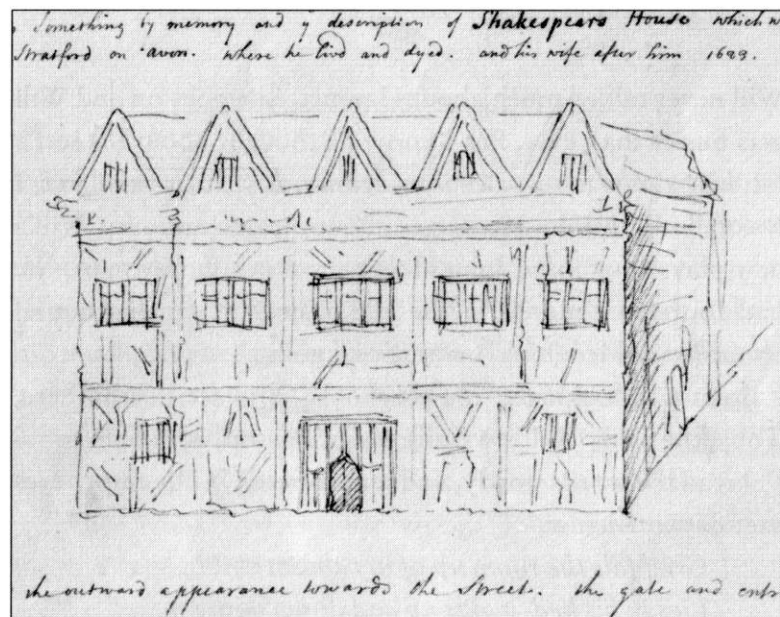 Something by memory and y description of Shakespears House which w
Stratford on avon. where he livd and dyed. and his wife after him 1623.
the outward appearance towards the Street. the gate and entr